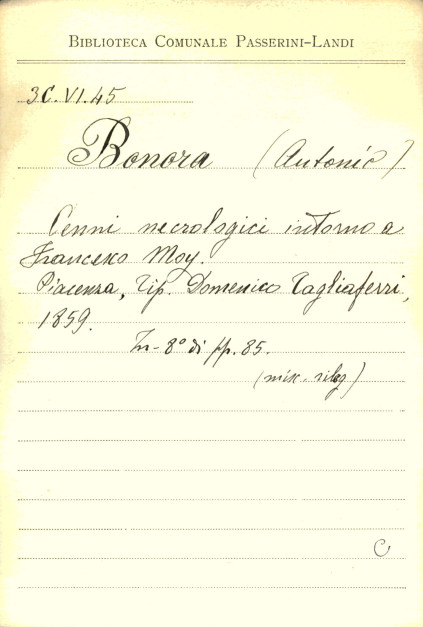 BIBLIOTECA COMUNALE PASSERINI-LANDI
3C.VI.45
Bonora (Antonio)
Cenni necrologici intorno a
Francesco Moy.
Piacenza, Tip. Domenico Tagliaferri,
1859.
In-8º di pp. 85.
(misc. rileg)
C